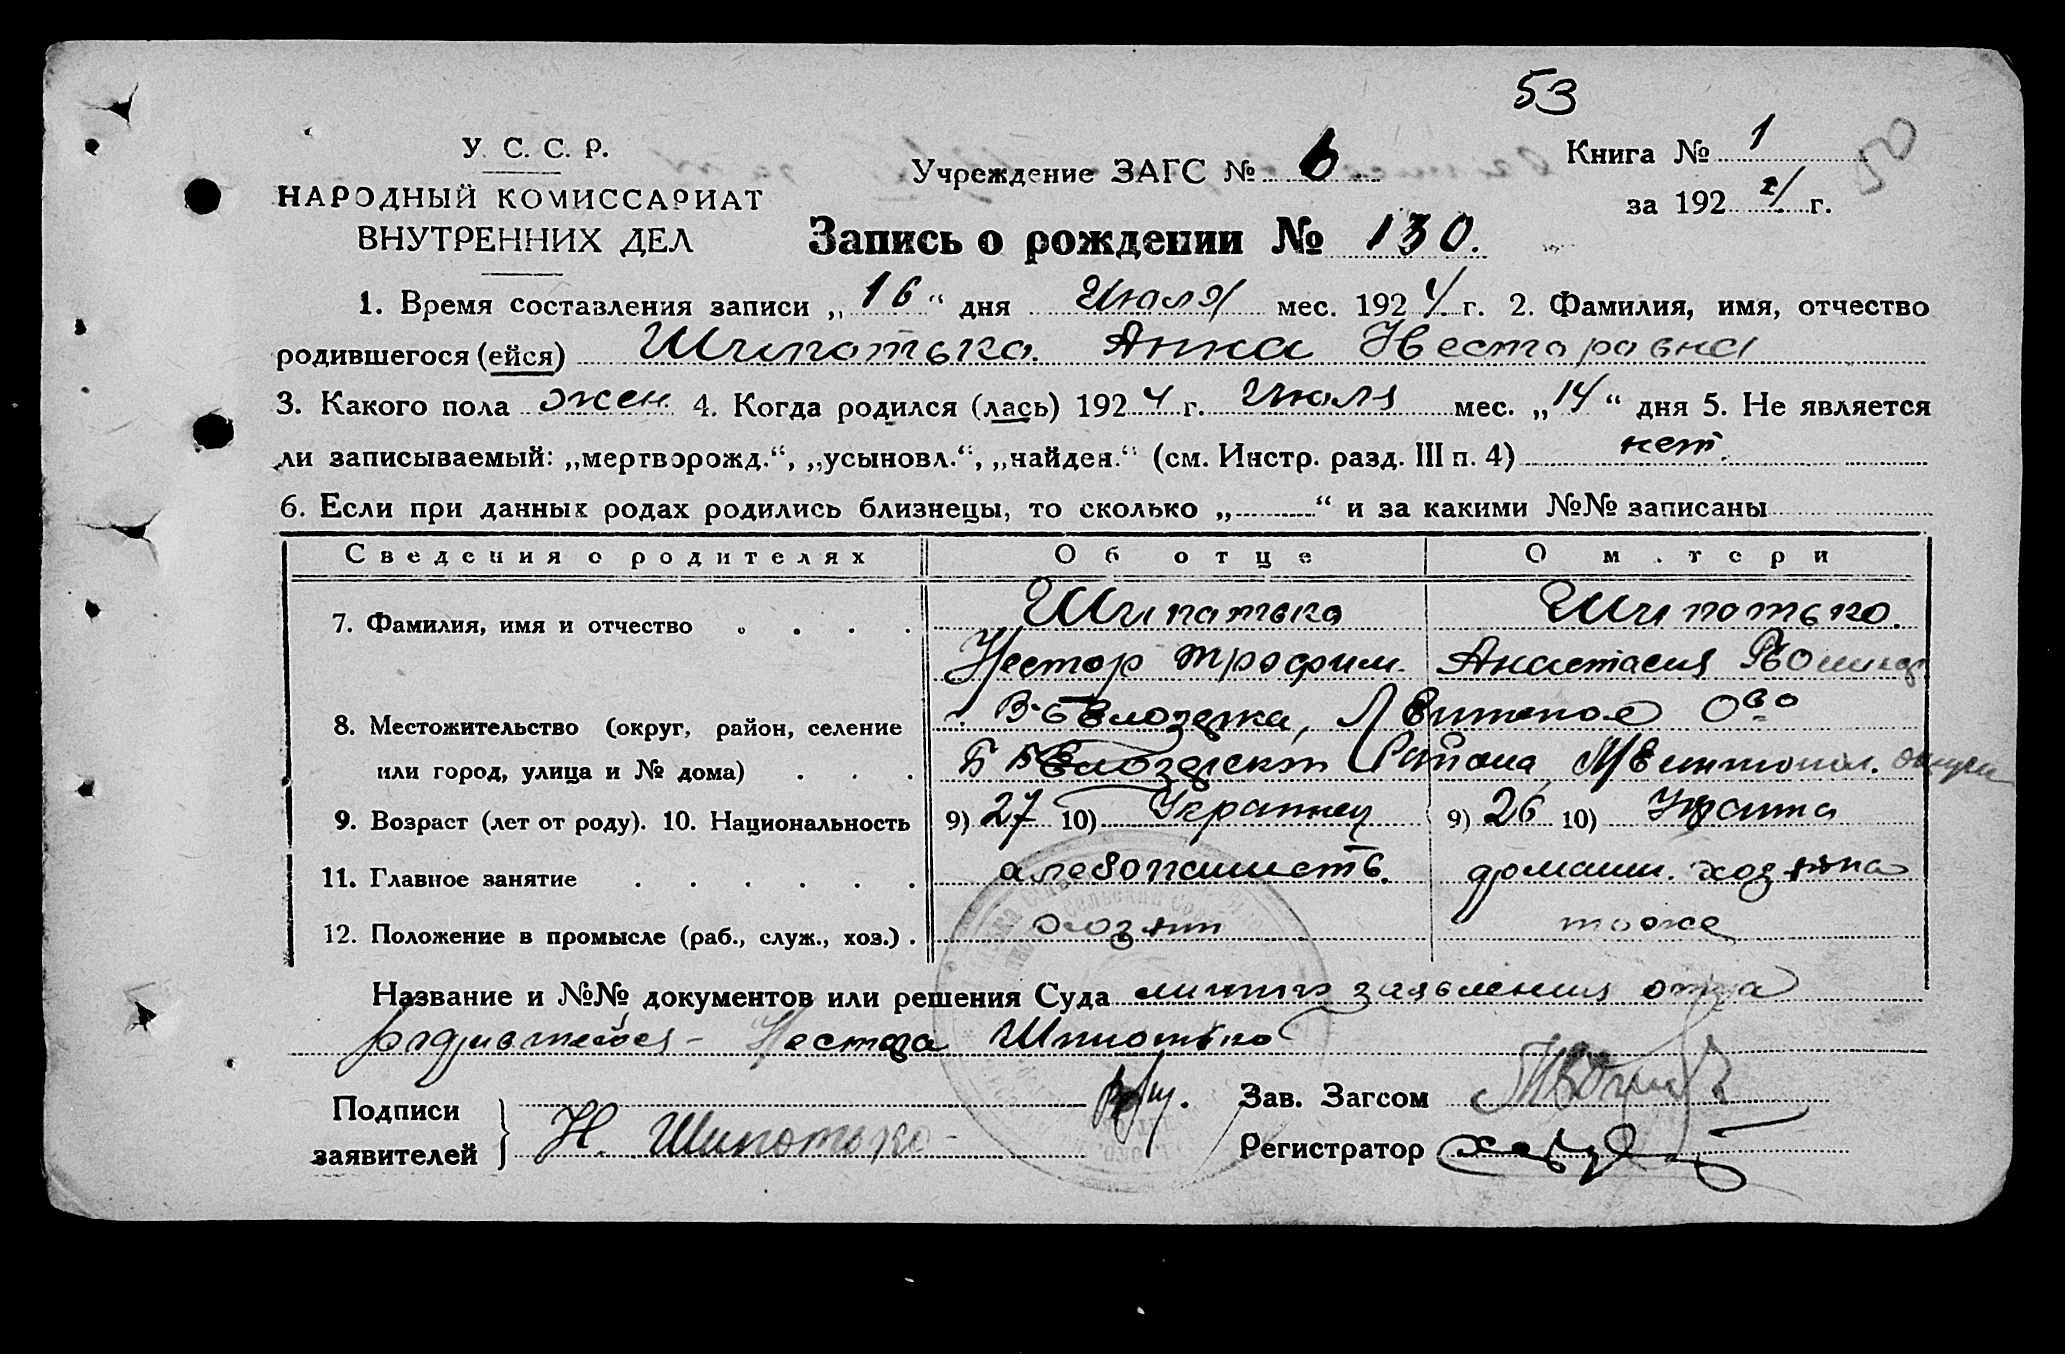 53
У. С. С. Р.
НАРОДНЫЙ КОМИССАРИАТ
ВНУТРЕННИХ ДЕЛ
Учреждение ЗАГС № 6
Книга № 1
за 192 4 г.
Запись о рождении № 130.
1. Время составления записи „ 16 “ дня Июля мес. 192 4 г. 2. Фамилия, имя, отчество
родившегося (ейся) Шипотько Анна Несторовна
3. Какого пола жен 4. Когда родился (лась) 192 4 г. Июля мес. „ 14 “ дня 5. Не является
ли записываемый: „мертворожд.“, „усыновл.“, „найден.“ (см. Инстр. разд. III п. 4) нет.
6. Если при данных родах родились близнецы, то сколько „ “ и за какими №№ записаны
Сведения о родителях Об отце О м.тери
7. Фамилия, имя и отчество Шипотько Шипотько.
Нестор Трофим. Анастасия
8. Местожительство (округ, район, селение В-Белозерка, Ово
или город, улица и № дома) Района, округа
9. Возраст (лет от роду). 10. Национальность 9) 27 10) Украинец 9) 26 10)
11. Главное занятие домашн. хозяйка
12. Положение в промысле (раб., служ., хоз.) . хозяин тоже
Название и №№ документов или решения Суда личного заявления отца
родившейся - Нестора Шипотько
Подписи
заявителей
Н. Шипотько
Зав. Загсом
Регистратор